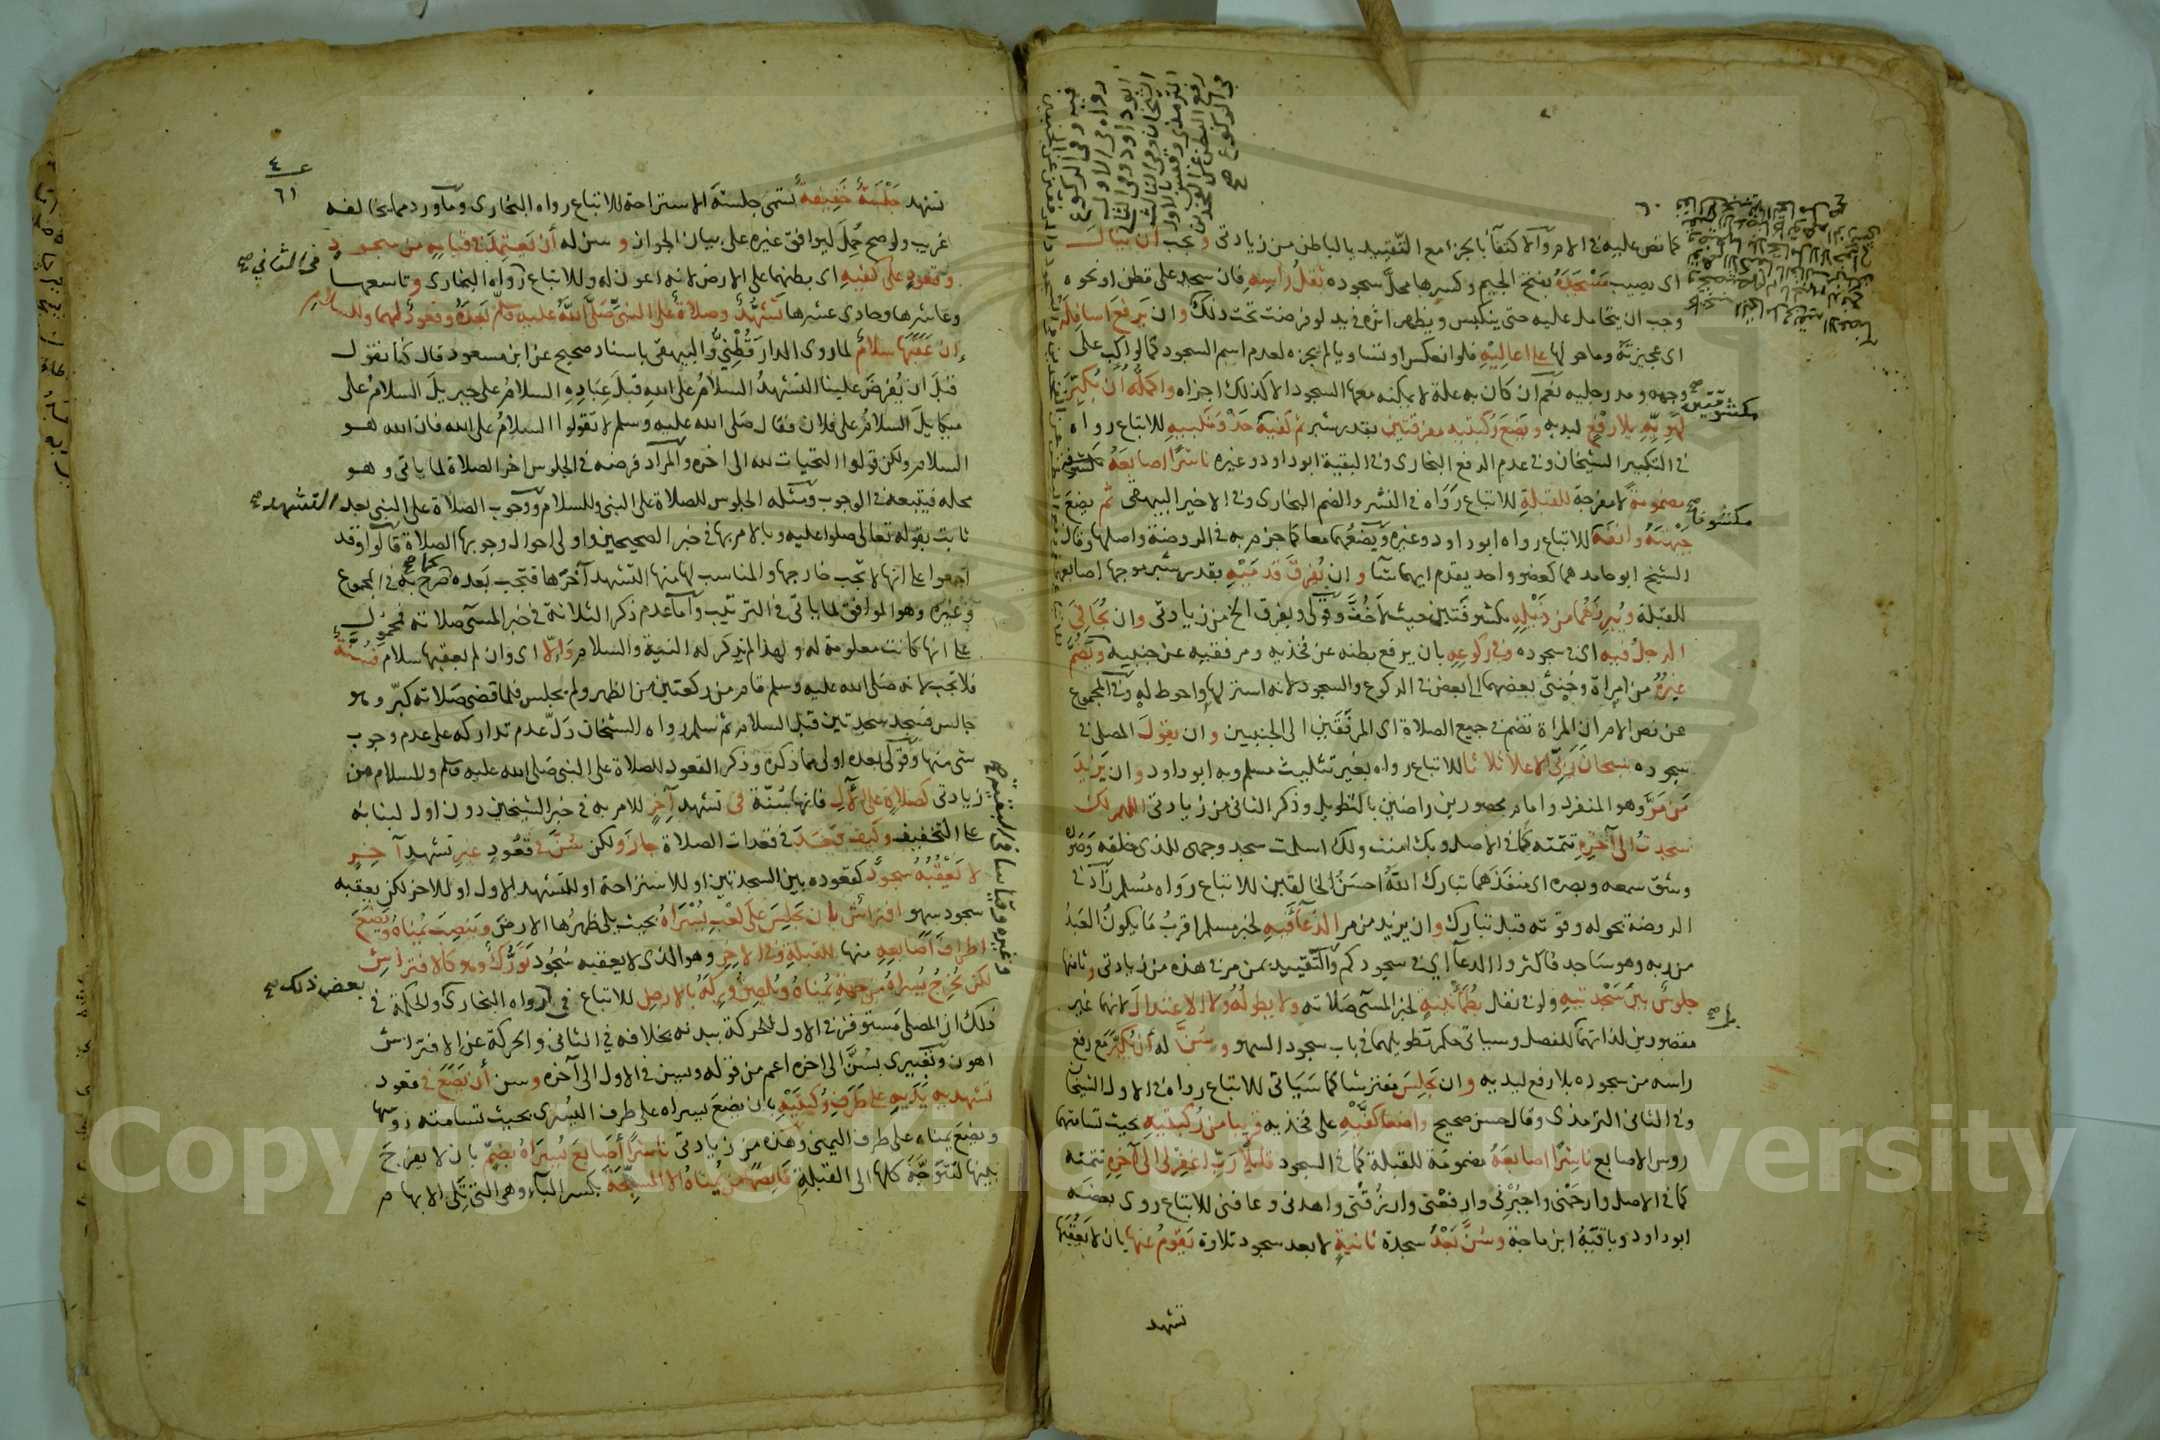 كما نص عليه في الام والاكتفاء بالجزء مع التقييد بالباطن من زيادتي ويجب ان ينال
اي يصيب مسجده بفتح الجيم وكسرها محل سجوده ثقل راسه فان سجد على قطن او نحوه
وجب ان يتحامل عليه حتى ينكبس ويظهر اثره في يد لو فرضت تحت ذلك وان يرفع اسافله
اي عجيزته وما حولها على اعاليه فلو انعكس او تساويا لم يجزه لعدم اسم السجود كما لو اكب على
وجهه ومد رجليه نعم ان كان به علة لا يمكنه معها السجود الا كذلك اجزاه واكمله ان يكبر
لهويه بلا رفع ليديه ويضع ركبتيه مفرقتين بقدر شبر ثم كفيه حذو منكبيه للاتباع رواه
مكشوفتين صح
في التكبير الشيخان وفي عدم الرفع البخاري وفي البقية ابو داود وغيره ناشرا اصابعه
مضمومة لا مفرجة للقبلة للاتباع رواه في النشر والضم البخاري وفي الاخير البيهقي ثم يضع
مكشوفا صح
جبهته وانفه للاتباع رواه ابو داود وغيره ويضعهما معا كما جزم به في الروضة واصلها وقال
الشيخ ابو حامد هما كعضو واحد يقدم ايهما شا وان يفرق قدميه بقدر شبر موجها اصابعهما
للقبلة ويبرزهما من ذيله مكشوفتين حيث لا خف وقولي ويفرق الخ من زيادتي وان يجافي
الرجل فيه اي في سجوده وفي ركوعه بان يرفع بطنه عن فخذيه ومرفقيه عن جنبيه ويضم
غيره من امراة وخنثى بعضهما الى بعض في الركوع والسجود لانه استر لها واحوط له وفي المجموع
عن نص الام ان المراة تضم في جميع الصلاة اي المرفقين الى الجنبين وان يقول المصلي في
سجوده سبحان ربي الاعلا ثلاثا للاتباع رواه بغير تثليث مسلم وبه ابو داود وان يزيد
من مر وهو المنفرد وامام محصورين راضين بالتطويل وذكر الثاني من زيادتي اللهم لك
سجدت الى آخره تتمته كما في الاصل وبك امنت ولك اسلمت سجد وجهي للذي خلقه وصوره
وشق سمعه وبصره اي منفذهما تبارك الله احسن الخالقين للاتباع رواه مسلم زاد في
الروضة بحوله وقوته قبل تبارك وان يزيد من مر الدعاء فيه لخبر مسلم اقرب ما يكون العبد
من ربه وهو ساجد فاكثروا الدعاء اي في سجودكم والتقييد بمن مر في هذه من زيادتي وثامنها
جلوس بين سجدتيه ولو في نفل بطمأنينة لخبر المسي صلاته ولا يطوله ولا الاعتدال لانهما غير
مقصودين لذاتهما للفصل وسياتي حكم تطويلهما في باب سجود السهو وسن له ان يكبر مع رفع
راسه من سجوده بلا رفع ليديه وان يجلس مفترشا كما سياتي للاتباع رواه في الاول الشيخان
وفي الثاني الترمذي وقال حسن صحيح واضعا كفيه على فخذيه قريبا من ركبتيه بحيث تسامتهما
رؤس الاصابع ناشرا اصابعه مضمومة للقبلة كما في السجود قائلا رب اغفر لي الى آخره تتمته
كما في الاصل وارحمني واجبرني وارفعني وارزقني واهدني وعافني للاتباع روى بعضه
ابو داود وباقيه ابن ماجة وسن بعد سجدة ثانية لا بعد سجود تلاوة يقوم عنها بان لا يعقبها
تشهد
٤
٦١
تشهد جلسة خفيفة تسمى جلسة الاستراحة للاتباع رواه البخاري وما ورد مما يخالفه
غريب ولو صح حمل ليوافق غيره على بيان الجواز وسن له ان يعتمد في قيامه من سجود
وقعود على كفيه اي بطنهما على الارض لانه اعون له وللاتباع رواه البخاري وتاسعها
في الثاني صح
وعاشرها وحادي عشرها تشهد وصلاة على النبي صلى الله عليه وسلم بعده وقعود لهما وللسلام
ان عقبها سلام لما روى الدارقطني والبيهقي باسناد صحيح عن ابن مسعود قال كنا نقول
قبل ان يفرض علينا التشهد السلام على الله قبل عباده السلام على جبريل السلام على
ميكائيل السلام على فلان فقال صلى الله عليه وسلم لا تقولوا السلام على الله فان الله هو
السلام ولكن قولوا التحيات لله الى اخره والمراد فرضه في الجلوس اخر الصلاة لما ياتي وهو
محله فيتبعه في الوجوب ومثله الجلوس للصلاة على النبي وللسلام ووجوب الصلاة على النبي بعد التشهد صح
ثابت بقوله تعالى صلوا عليه وبالامر بها في خبر الصحيحين واولى احوال وجوبها الصلاة قالوا وقد
اجمعوا على انها لا تجب خارجها والمناسب لها منها التشهد آخرها فتجب بعده كما صرح به في المجموع
وغيره وهو الموافق لما ياتي في الترتيب واما عدم ذكر الثلاثة في خبر المسي صلاته فمحمول
على انها كانت معلومة له ولهذا لم يذكر له النية والسلام والا اي وان لم يعقبها سلام فسنة
فلا تجب لانه صلى الله عليه وسلم قام من ركعتين من الظهر ولم يجلس فلما قضى صلاته كبر وهو
جالس فسجد سجدتين قبل السلام ثم سلم رواه الشيخان دل عدم تداركه على عدم وجوب
شي منها وقولي بعده اولى مما ذكره وذكر القعود للصلاة على النبي صلى الله عليه وسلم وللسلام من
زيادتي كصلاة على الآل فانها سنة في تشهد آخر للامر به في خبر الشيخين دون اول لبنائه
على التخفيف وكيف قعد في قعدات الصلاة جاز ولكن سن في قعود غير تشهد آخر
لا يعقبه سجود كقعوده بين السجدتين او للاستراحة او للتشهد الاول او للاخر لكن يعقبه
سجود سهو افتراش بان يجلس على كعب يسراه بحيث يلي ظهرها الارض وينصب يمناه ويضع
اطراف اصابعه منها للقبلة وفي الاخر وهو الذي لا يعقبه سجود تورك وهو كالافتراش
لكن يخرج يسراه من جهة يمناه ويلصق وركه بالارض للاتباع في بعض ذلك صح رواه البخاري والحكمة في
وغيره وقياسا في البقية صح
ذلك ان المصلي مستوفز في الاول للحركة بيدنه بخلافه في الثاني والحركة عن الافتراش
اهون وتعبيري بسن الى اخره اعم من قوله ويسن في الاول الى آخره وسن ان يضع في قعود
تشهديه يديه على طرف ركبتيه بان يضع يسراه على طرف اليسرى بحيث تسامته رؤسها
ويضع يمناه على طرف اليمنى وهذه من زيادتي ناشرا اصابع يسراه بضم بان لا يفرج
بينها لتتوجه كلها الى القبلة قابضها من يمناه الا المسبحة بكسر الباء وهي التي تلي الابهام
Copyright © King Saud University